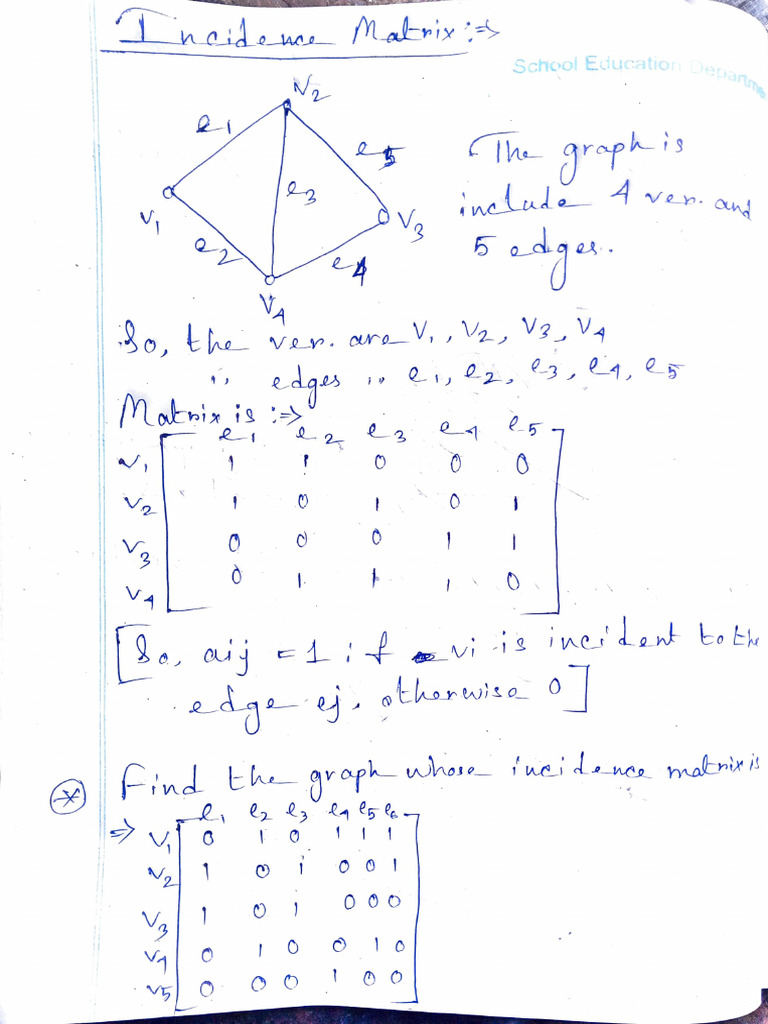 Incidence Matrix :⇒
School Education Departme
v2
e1
e5
The graph is
e3
include 4 ver. and
v1
v3
e2
5 edges.
e4
v4
So, the ver. are v1, v2, v3, v4
" edges " e1, e2, e3, e4, e5
Matrix is :⇒
e1 e2 e3 e4 e5
v1 1 1 0 0 0
v2 1 0 1 0 1
v3 0 0 0 1 1
v4 0 1 1 1 0
[So, aij = 1 if vi is incident to the
edge ej, otherwise 0]
Find the graph whose incidence matrix is
e1 e2 e3 e4 e5 e6
⇒ v1 0 1 0 1 1 1
v2 1 0 1 0 0 1
v3 1 0 1 0 0 0
v4 0 1 0 0 1 0
v5 0 0 0 1 0 0